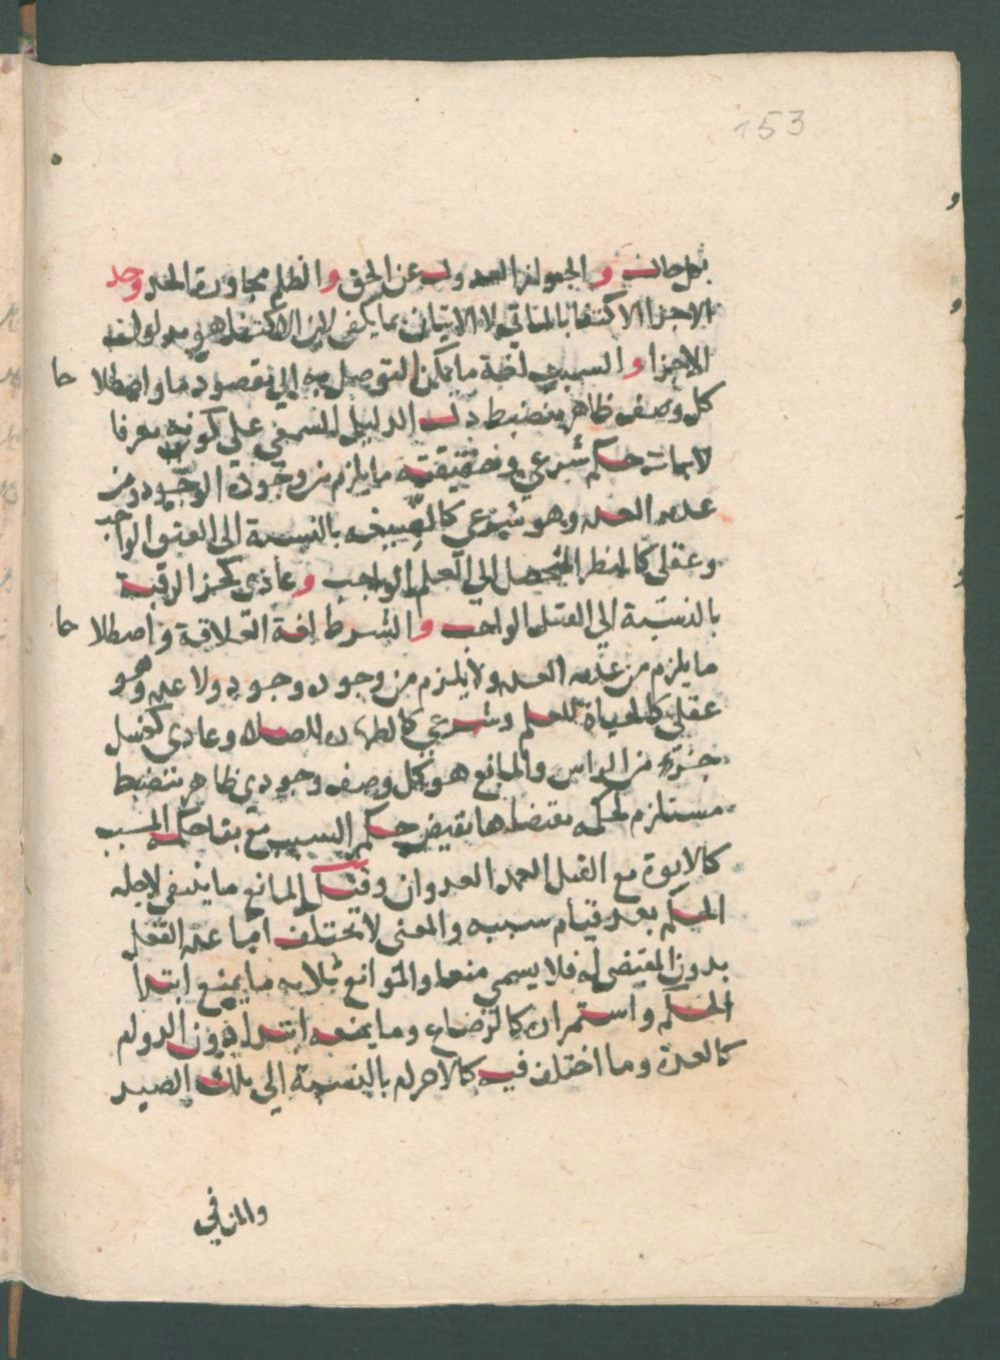 153
بكل حال و الجور العدول عن الحق و الظلم مجاوزة الحد وحد
الاجزا الاكتفا بالماتي لا الاتيان بما يكفي لان الاكتفا هو مدلول
الاجزا و السبب لغة ما يمكن التوصل به الي مقصود ما واصطلاحا
كل وصف ظاهر منضبط دل الدليل السمعي على كونه معرفا
لاثبات حكم شرعي وحقيقته ما يلزم من وجوده الوجود ومن
عدمه العدم وهو شرعي كالصيغة بالنسبة الى العتق الواجب
وعقلي كالنظر المحصل الي العلم الواجب و عادي كحز الرقبة
بالنسبة الي القتل الواجب و الشرط لغة العلاقة واصطلاحا
ما يلزم من عدمه العدم ولا يلزم من وجوده وجود ولا عدم وهو
عقلي كالحياة للعلم وشرعي كالطهاره للصلاه وعادي كغسل
جزء من الراس والمانع هو كل وصف وجودي ظاهر منضبط
مستلزم لحكمه مقتضاها نقيض حكم السبب مع بقا حكمه المسبب
كالابوة مع القتل العمد العدوان وقيل المانع ما ينتفي لاجله
الحكم بعد قيام سببه والمعنى لا تختلف اما عدم الفعل
بدون المقتضى له فلا يسمي منعا والموانع ثلاثه ما يمنع ابتدا
الحكم واستمراره كالرضاع وما يمنعه ابتدا دون الدوام
كالعدة وما اختلف فيه كالاحرام بالنسبة الي ملك الصيد